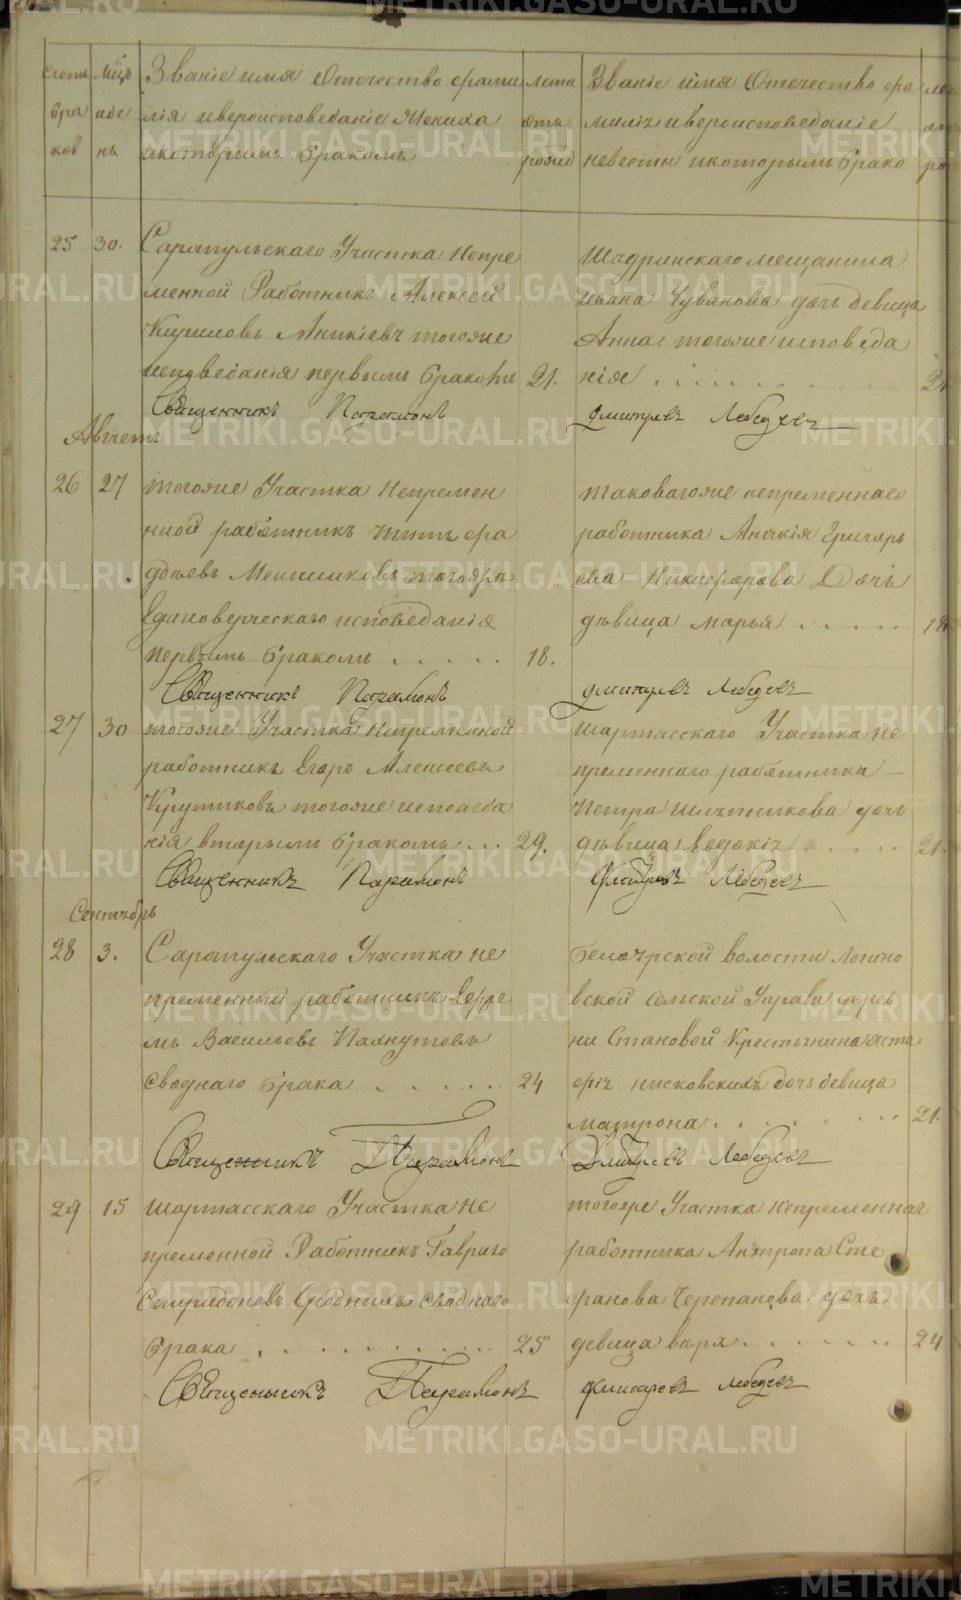 Счетъ
бра
ковъ
Мцъ
и де
нь
Званіе имя Отечество фами
лія и вероисповеданіе Жениха
и которымъ бракомъ
Лета
отъ
рожд
Званіе имя Отечество фа
миліи и вероисповеданіе
невесты и которымъ брако
25 30. Сарапульскаго Участка Непре
менной Работникъ Алексей
Кириловъ Аникіевъ тогоже
исповеданія первымъ бракомъ 21.
Шадринскаго мещанина
Ивана Чуванова дочь девица
Анна тогоже исповеда
ніе . . . . . 2
Священникъ Парамонъ Дмитревъ Лебедевъ
Августъ
26 27 тогоже Участка Непремен
ной работникъ Титъ Фа
дѣевъ Меншиковъ тогожъ
Единоверческаго исповеданія
первымъ бракомъ . . . . . 18.
таковагоже непременнаго
работника Аникія Григорь
ева Никифорова Дочь
дѣвица Марья . . . . . 18
Священникъ Парамонъ Дмитревъ Лебедевъ
27 30 тогоже Участка Непременной
работникъ Егоръ Алексеевъ
Крутиковъ тогоже исповеда
нія вторымъ бракомъ . . . 29.
Шарташскаго Участка не
пременнаго работника
Петра дочь
дѣвица Евдокія . . . . . 21.
Священникъ Парамонъ Дмитревъ Лебедевъ
Сентябрь
28 3. Сарапульскаго Участка не
пременный работникъ Ефре
мъ Васильевъ Пахнутовъ
сводного брака . . . . . . 24
волости Логино
вской сельской Управы дерев
ни Становой Крестьянина Аста
фія дочь девица
матрона . . . . . . 21.
Священникъ Парамонъ Дмитревъ Лебедевъ
29 15 Шарташскаго Участка не
пременной Работникъ Гаврило
Спиридоновъ своднаго
брака . . . . . . . . . . . 25
тогоже Участка непременнаг
работника Антропа Сте
фанова Черепанова дочь
девица варя . . . . . . . . 24
Священникъ Парамонъ Дмитревъ Лебедевъ
METRIKI.GASO-URAL.RU